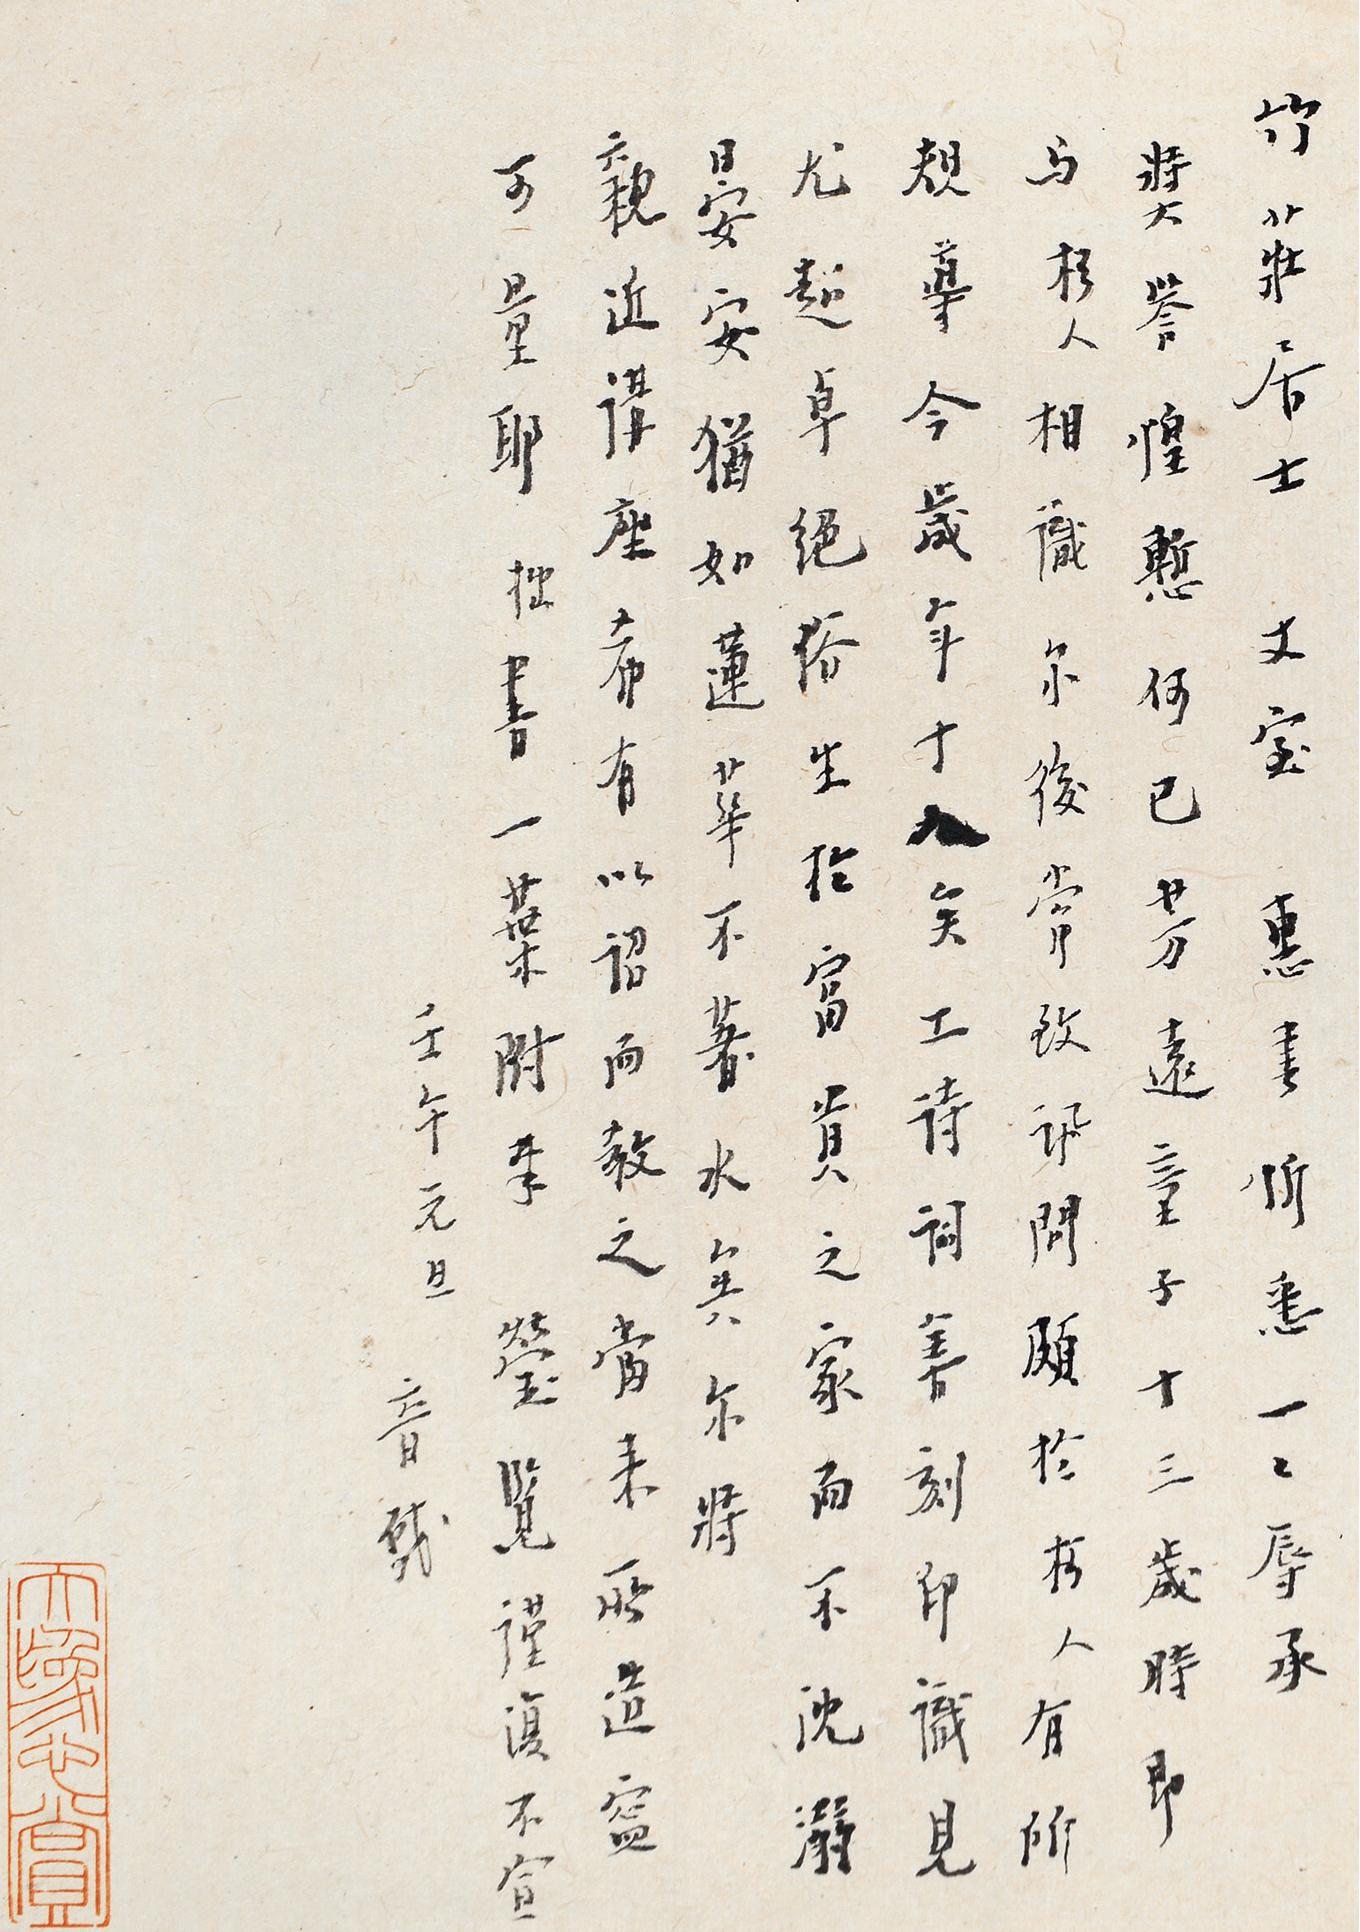 竹莊居士 丈室 惠書忻悉一〻辱承
奬譽惶慙何已芳遠童子十三歲時即
与朽人相識尔後常致訊問頗於朽人有所
規導今歲年十八矣工詩詞善刻印識見
尤超卓絕俗生於富貴之家而不沈溺
晏安猶如蓮華不著水矣尔將
親近講座希有以詔而教之當來所造寧
可量耶 拙書一葉附奉 瑩覽謹復不宣
壬午元旦 音啟